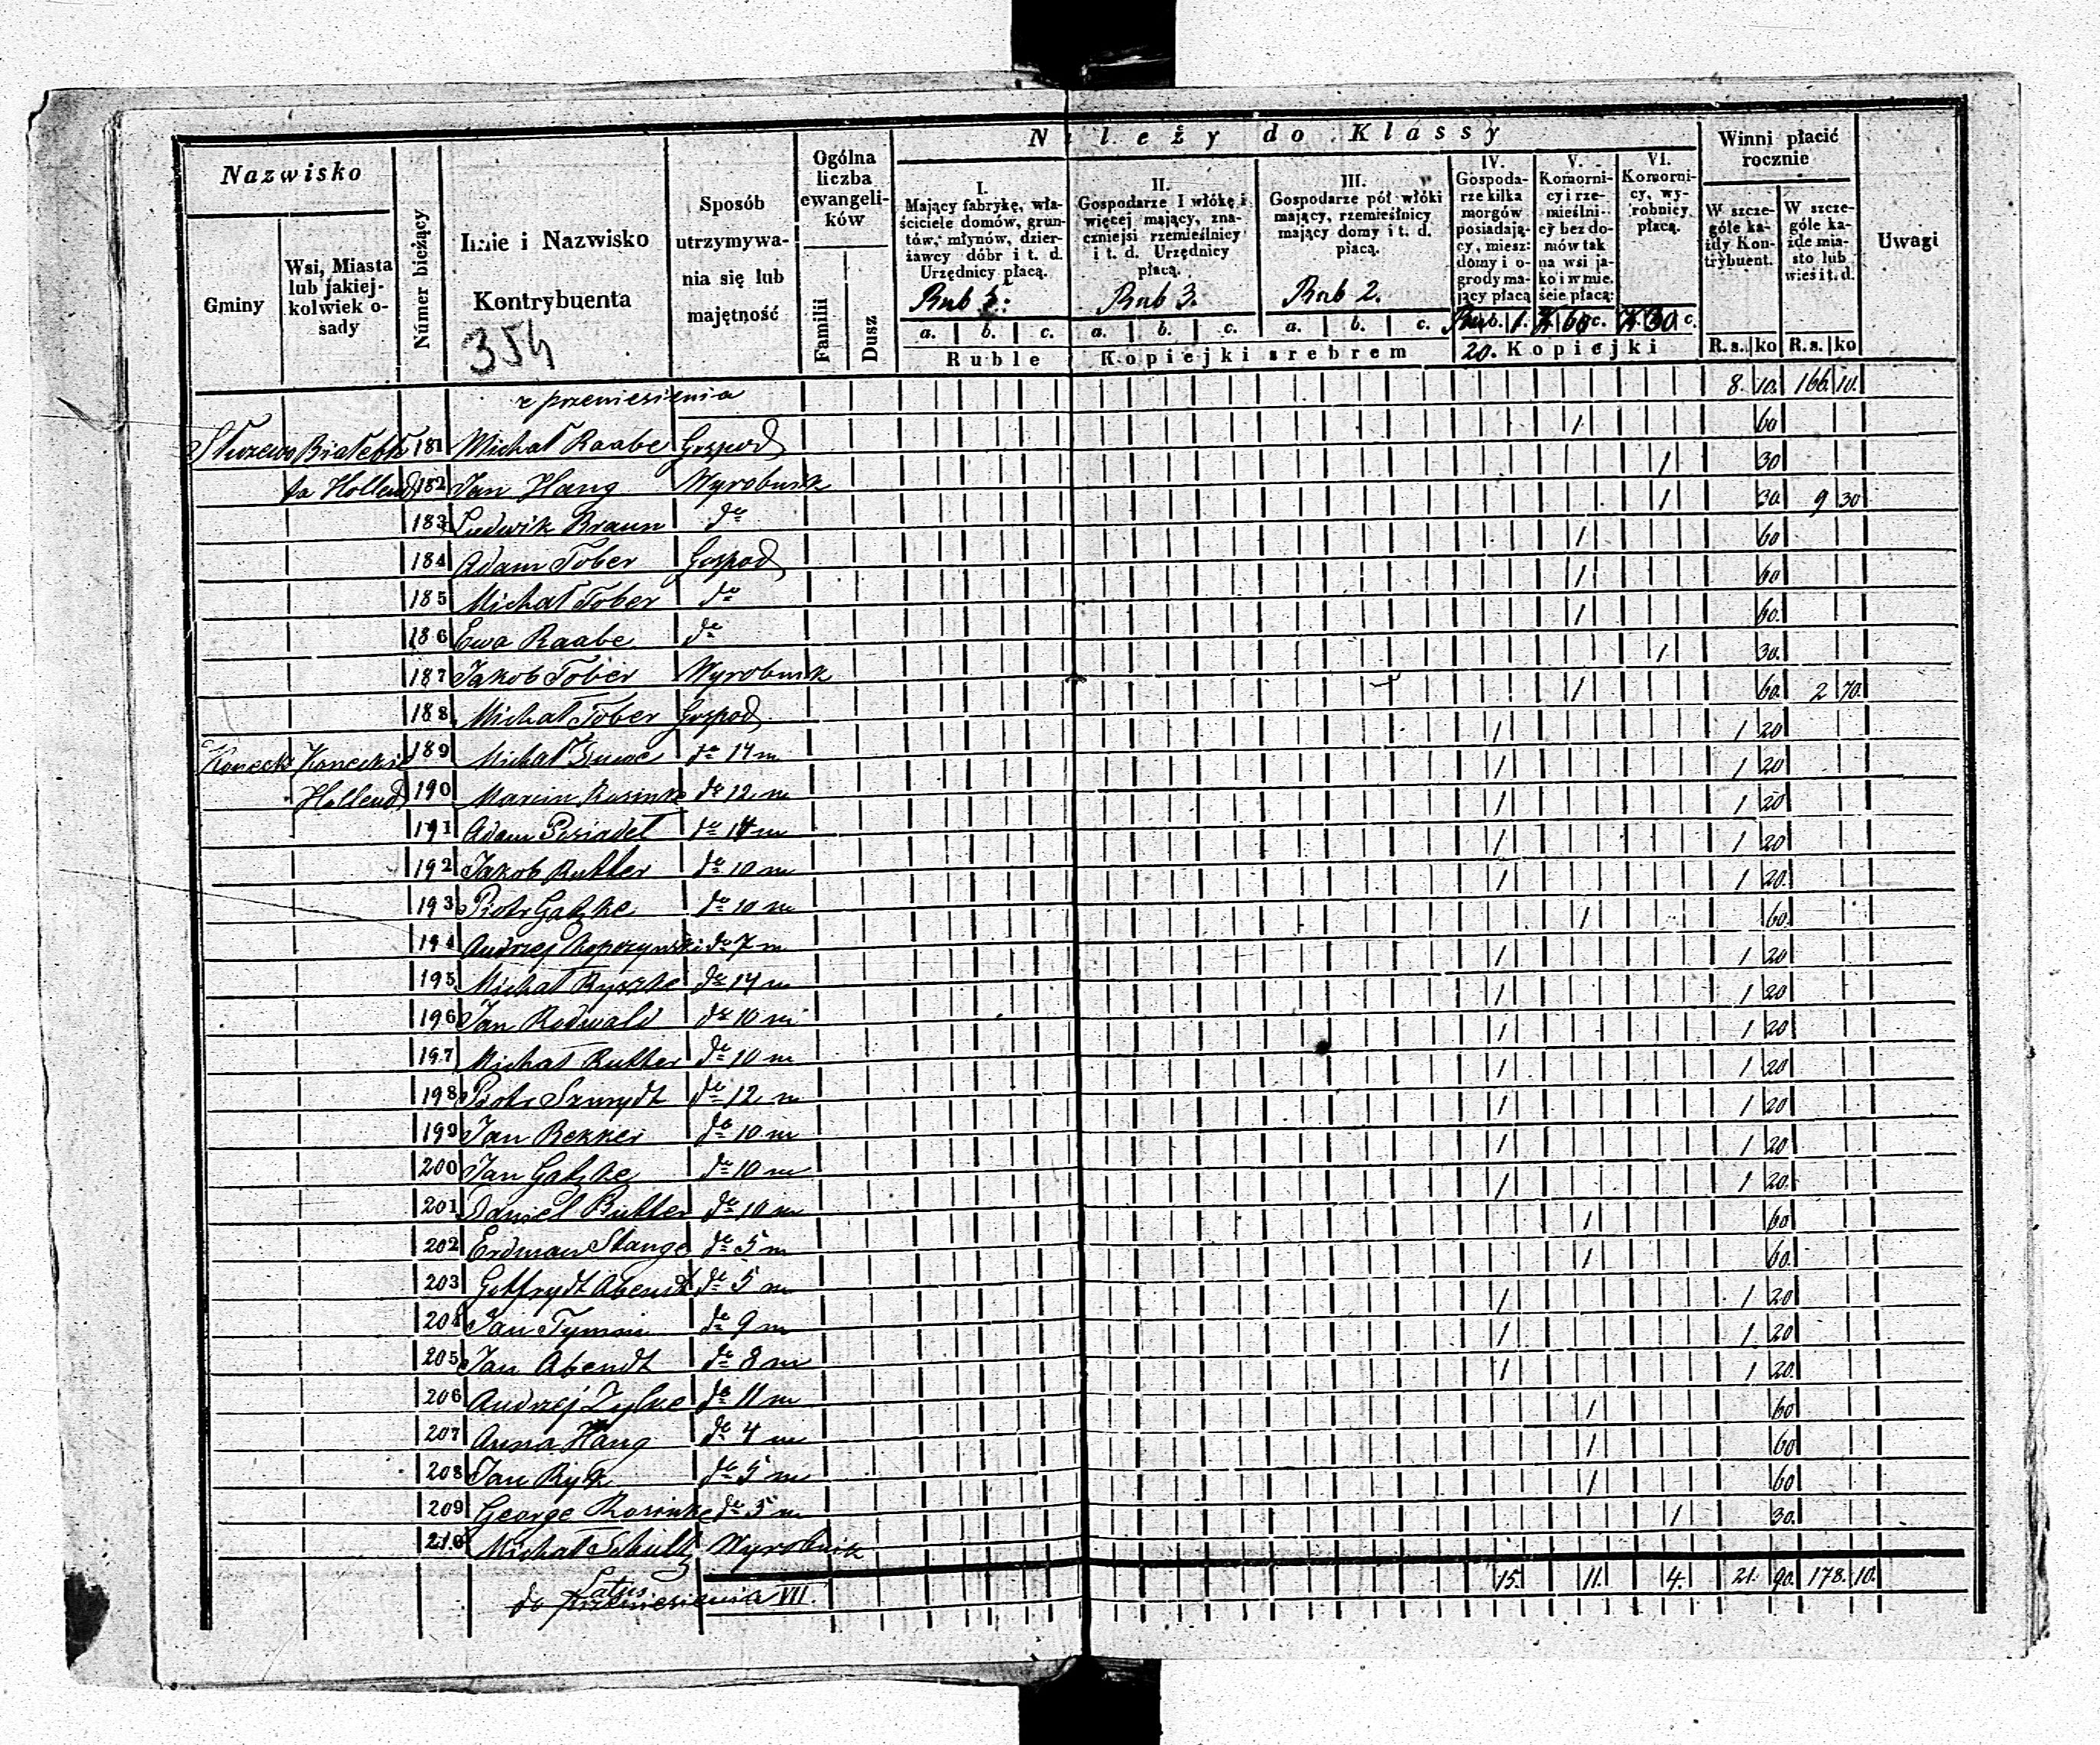 Nazwisko
Gminy
Wsi, Miasta lub jakiej-kolwiek o-sady
Númer bieżący
Imie i Nazwisko Kontrybuenta
354
Sposób utrzymywa-nia się lub majętność
Ogólna liczba ewangeli-ków
Familii
Dusz
Należy do Klassy
I. Mający fabrykę, wła-ściciele domów, grun-tów, młynów, dzier-żawcy dóbr i t. d. Urzędnicy płacą.
Rub
II. Gospodarze I włókę i więcej mający, zna-czniejsi rzemieślnicy i t. d. Urzędnicy płacą.
Rub 3.
III. Gospodarze pół włóki mający, rzemieślnicy mający domy i t. d. płacą.
Rub 2.
IV. Gospoda-rze kilka morgów posiadają-cy, miesz: domy i o-grody ma-jący płacą
Rub. 1. 20.
V. Komorni-cy i rze-mieślni-cy bez do-mów tak na wsi ja-ko i w mie-ście płacą:
K. 60 c.
VI. Komorni-cy, wy-robnicy płacą.
K. 30 c.
a. b. c. a. b. c. a. b. c.
Ruble Kopiejki srebrem Kopiejki
Winni płacić rocznie
W szcze-góle ka-żdy Kon-trybuent.
W szcze-góle ka-żde mia-sto lub wieś i t. d.
R.s. ko R.s. ko
Uwagi
z przeniesienia 8. 10. 166. 10.
Białeble 181 Michał Raabe Gospod 1 60
Hollend 182 Jan Hang Wyrobnik 1 30
183 Ludwik Braun do 1 30. 9 30
184 Adam Tober Gospod 1 60
185 Michał Tober do 1 60
186 Ewa Raabe do 1 60.
187 Jakob Tober Wyrobnik 1 30.
188 Michał Tober Gospod 1 60. 2 70.
Koneck Koneckie 189 Michał do 14 m 1 1 20
Hollend 190 Marcin Rosinke do 12 m 1 1 20
191 Adam do 14 m 1 1 20
192 Jakob Rutter do 10 m 1 1 20
193 Piotr Gatzke do 10 m 1 1 20.
194 Andrzej do 7 m 1 60.
195 Michał do 14 m 1 1 20
196 Jan Rodwald do 10 m 1 1 20
197 Michał Rutter do 10 m 1 1 20
198 Piotr Szmydt do 12 m 1 1 20
199 Jan Rekker do 10 m 1 1 20
200 Jan Gatzke do 10 m 1 1 20
201 Daniel Rutter do 10 m 1 1 20.
202 Erdman Stange do 5 m 1 60
203 Gotfrydt Abendt do 5 m 1 60.
204 Jan do 9 m 1 1 20
205 Jan Abendt do 8 m 1 1 20
206 Andrzej Zylke do 11 m 1 1 20.
207 Anna Hang do 4 m 1 60
208 Jan Ryk do 5 m 1 60
209 George Rosinke do 5 m 1 60
210 Michał Schultz Wyrobnik 1 30.
Latus
do przeniesienia VII. 15. 11. 4. 21. 90. 178. 10.